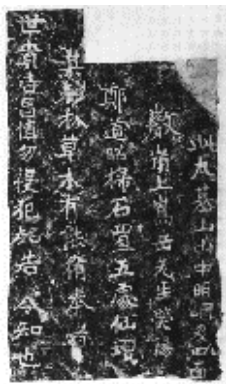 此大基山內中明岡及四面
巖頂上嵩岳先生滎陽
鄭道昭掃石置五處仙壇
其松林草木有能脩奉者
世貴吉昌慎勿侵犯銘告令知也